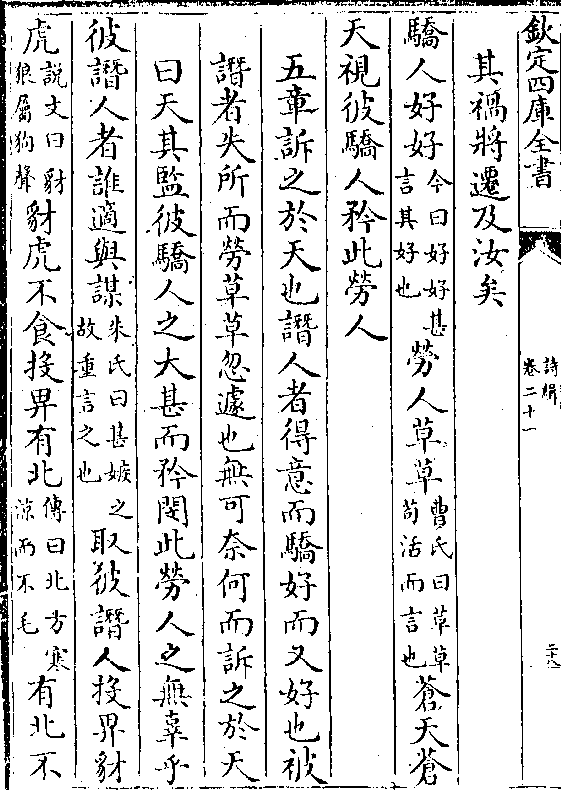 欽定四庫全書
詩緝
卷二十一
其禍將遷及汝矣
驕人好好今曰好好甚言其好也勞人草草曹氏曰草草苟活而言也蒼天蒼
天視彼驕人矜此勞人
五章訴之於天也譖人者得意而驕好而又好也被
譖者失所而勞草草忽遽也無可奈何而訴之於天
曰天其監彼驕人之大甚而矜閔此勞人之無辜乎
彼譖人者誰適與謀朱氏曰甚嫉之故重言之也取彼譖人投畀豺
虎說文曰豺狼屬狗聲豺虎不食投畀有北傳曰北方寒涼而不毛有北不